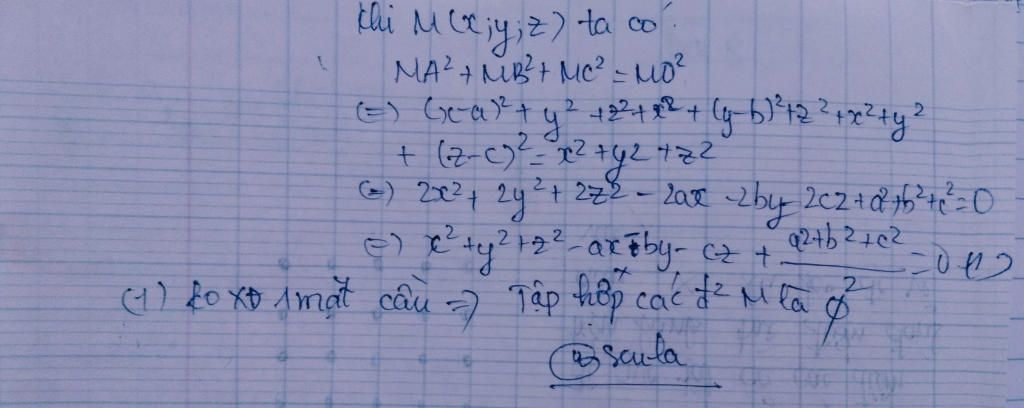 Khi M(x;y;z) ta có:
MA² + MB² + MC² = MO²
(=) (x-a)² + y² + z² + x² + (y-b)² + z² + x² + y²
+ (z-c)² = x² + y² + z²
(=) 2x² + 2y² + 2z² - 2ax - 2by - 2cz + a² + b² + c² = 0
(=) x² + y² + z² - ax - by - cz + (a² + b² + c²)/2 = 0 (1)
(1) ko XĐ 1 mặt cầu => Tập hợp các đ² M là ∅